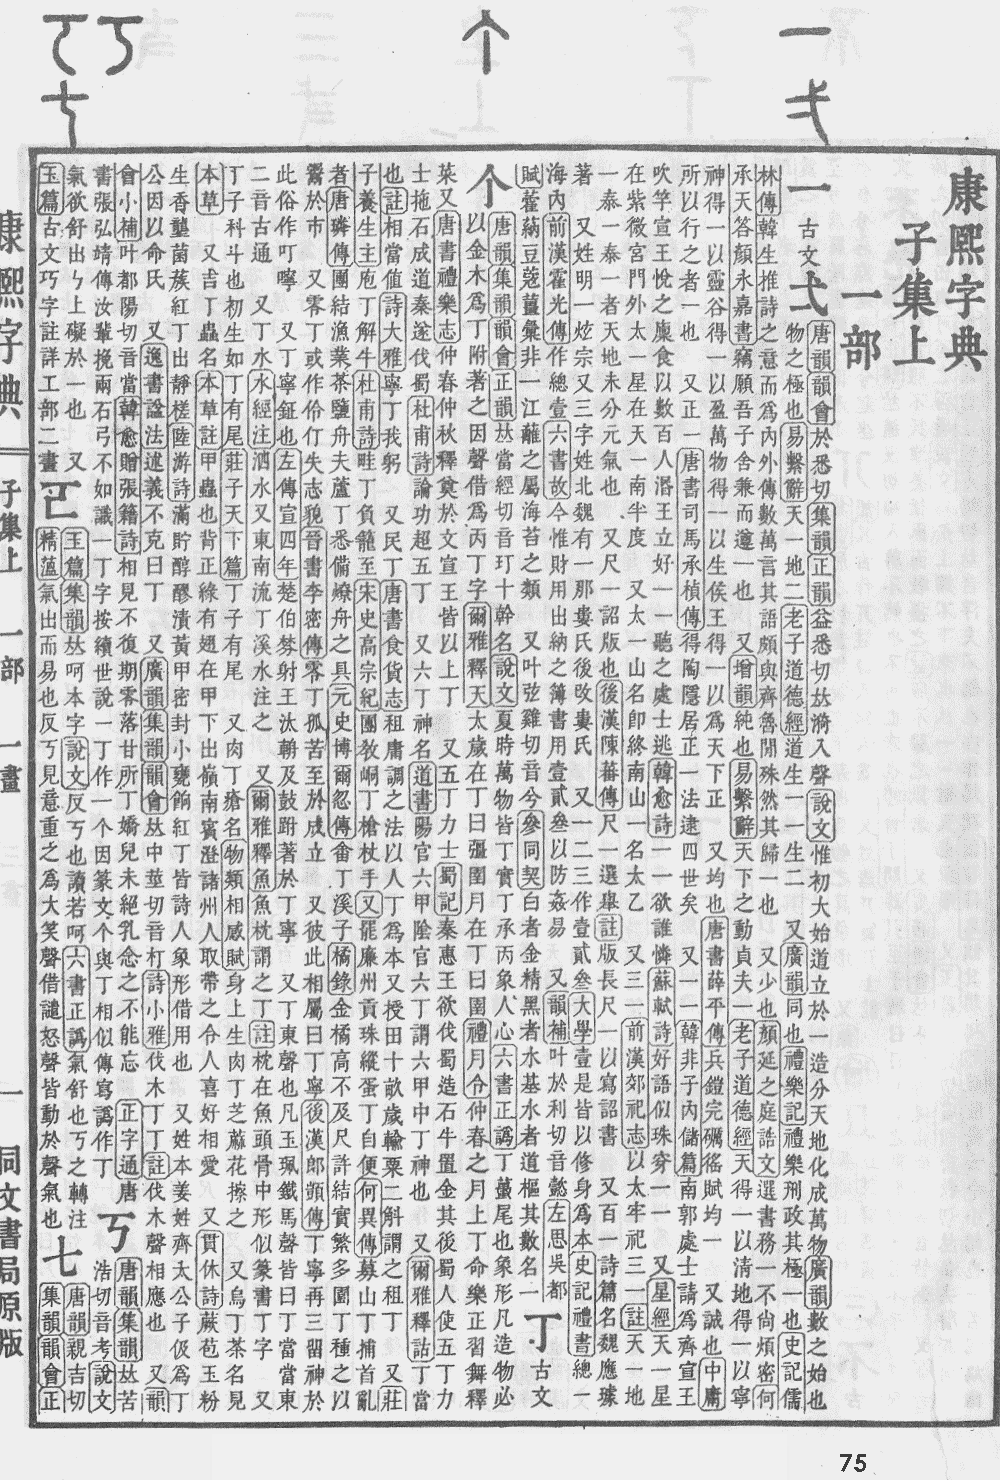 康熙字典
子集上
一部
一 古文弌 唐韻韻會於悉切集韻正韻益悉切𠀤漪入聲說文惟初大始道立於一造分天地化成萬物廣韻數之始也
物之極也易繫辭天一地二老子道德經道生一一生二 又廣韻同也禮樂記禮樂刑政其極一也史記儒
林傳韓生推詩之意而爲內外傳數萬言其語頗與齊魯閒殊然其歸一也 又少也顏延之庭誥文選書務一不尚煩密何
承天答顏永嘉書竊願吾子舍兼而遵一也 又增韻純也易繫辭天下之動貞夫一老子道德經天得一以清地得一以寧
神得一以靈谷得一以盈萬物得一以生侯王得一以爲天下正 又均也唐書薛平傳兵鎧完礪徭賦均一 又誠也中庸
所以行之者一也 又正一唐書司馬承楨傳得陶隱居正一法逮四世矣 又一一韓非子內儲篇南郭處士請爲齊宣王
吹竽宣王悅之廩食以數百人湣王立好一一聽之處士逃韓愈詩一一欲誰憐蘇軾詩好語似珠穿一一 又星經天一星
在紫微宮門外太一星在天一南半度 又太一山名卽終南山一名太乙 又三一前漢郊祀志以太牢祀三一註天一地
一泰一泰一者天地未分元氣也 又尺一詔版也後漢陳蕃傳尺一選舉註版長尺一以寫詔書 又百一詩篇名魏應璩
著 又姓明一炫宗又三字姓北魏有一那蔞氏後攺蔞氏 又一二三作壹貳叁大學壹是皆以修身爲本史記禮書總一
海內前漢霍光傳作總壹六書故今惟財用出納之簿書用壹貳叁以防姦易 又韻補叶於利切音懿左思吳都
賦藿蒳豆蔻薑彙非一江蘺之屬海苔之類 又叶弦雞切音兮參同契白者金精黑者水基水者道樞其數名一 丁 古文
个 唐韻集韻韻會正韻𠀤當經切音玎十幹名說文夏時萬物皆丁實丁承丙象人心六書正譌丁蠆尾也象形凡造物必
以金木爲丁附著之因聲借爲丙丁字爾雅釋天太歲在丁曰彊圉月在丁曰圉禮月令仲春之月上丁命樂正習舞釋
菜又唐書禮樂志仲春仲秋釋奠於文宣王皆以上丁 又五丁力士蜀記秦惠王欲伐蜀造石牛置金其後蜀人使五丁力
士拖石成道秦遂伐蜀杜甫詩論功超五丁 又六丁神名道書陽官六甲陰官六丁謂六甲中丁神也 又爾雅釋詁丁當
也註相當值詩大雅寧丁我躬 又民丁唐書食貨志租庸調之法以人丁爲本又授田十畝歲輸粟二斛謂之租丁 又莊
子養生主庖丁解牛杜甫詩畦丁負籠至宋史高宗紀團敎峒丁槍杖手又罷廉州貢珠縱蛋丁自便何異傳募山丁捕首亂
者唐璘傳團結漁業茶鹽舟夫蘆丁悉備燎舟之具元史博爾忽傳畬丁溪子橘錄金橘高不及尺許結實繁多園丁種之以
鬻於市 又零丁或作伶仃失志貌晉書李密傳零丁孤苦至於成立又彼此相屬曰丁寧後漢郎顗傳丁寧再三留神於
此俗作叮嚀 又丁寧鉦也左傳宣四年楚伯棼射王汰輈及鼓跗著於丁寧 又丁東聲也凡玉珮鐵馬聲皆曰丁當當東
二音古通 又丁水水經注泗水又東南流丁溪水注之 又爾雅釋魚魚枕謂之丁註枕在魚頭骨中形似篆書丁字 又
丁子科斗也初生如丁有尾莊子天下篇丁子有尾 又肉丁瘡名物類相感賦身上生肉丁芝蔴花擦之 又烏丁茶名見
本草 又吉丁蟲名本草註甲蟲也背正綠有翅在甲下出嶺南賓澄諸州人取帶之令人喜好相愛 又貫休詩蕨苞玉粉
生香壟菌蔟紅丁出靜槎陸游詩滿貯醇醪漬黃甲密封小甕餉紅丁皆詩人象形借用也 又姓本姜姓齊太公子伋爲丁
公因以命氏 又逸書諡法述義不克曰丁 又廣韻集韻韻會𠀤中莖切音朾詩小雅伐木丁丁註伐木聲相應也 又韻
會小補叶都陽切音當韓愈贈張籍詩相見不復期零落甘所丁嬌兒未絕乳念之不能忘 正字通唐
書張弘靖傳汝輩挽兩石弓不如識一丁字按續世說一丁作一个因篆文个與丁相似傳寫譌作丁 丂 唐韻集韻𠀤苦
浩切音考說文
氣欲舒出ㄣ上礙於一也 又玉篇集韻𠀤呵本字說文反丂也讀若呵六書正譌氣舒也丂之轉注 七 唐韻親吉切
玉篇古文巧字註詳工部二畫 𠀀 精薀氣出而易也反丂見意重之爲大笑聲借譴怒聲皆動於聲氣也
集韻韻會正
康熙字典
子集上 一部 一畫
一
同文書局原版
75